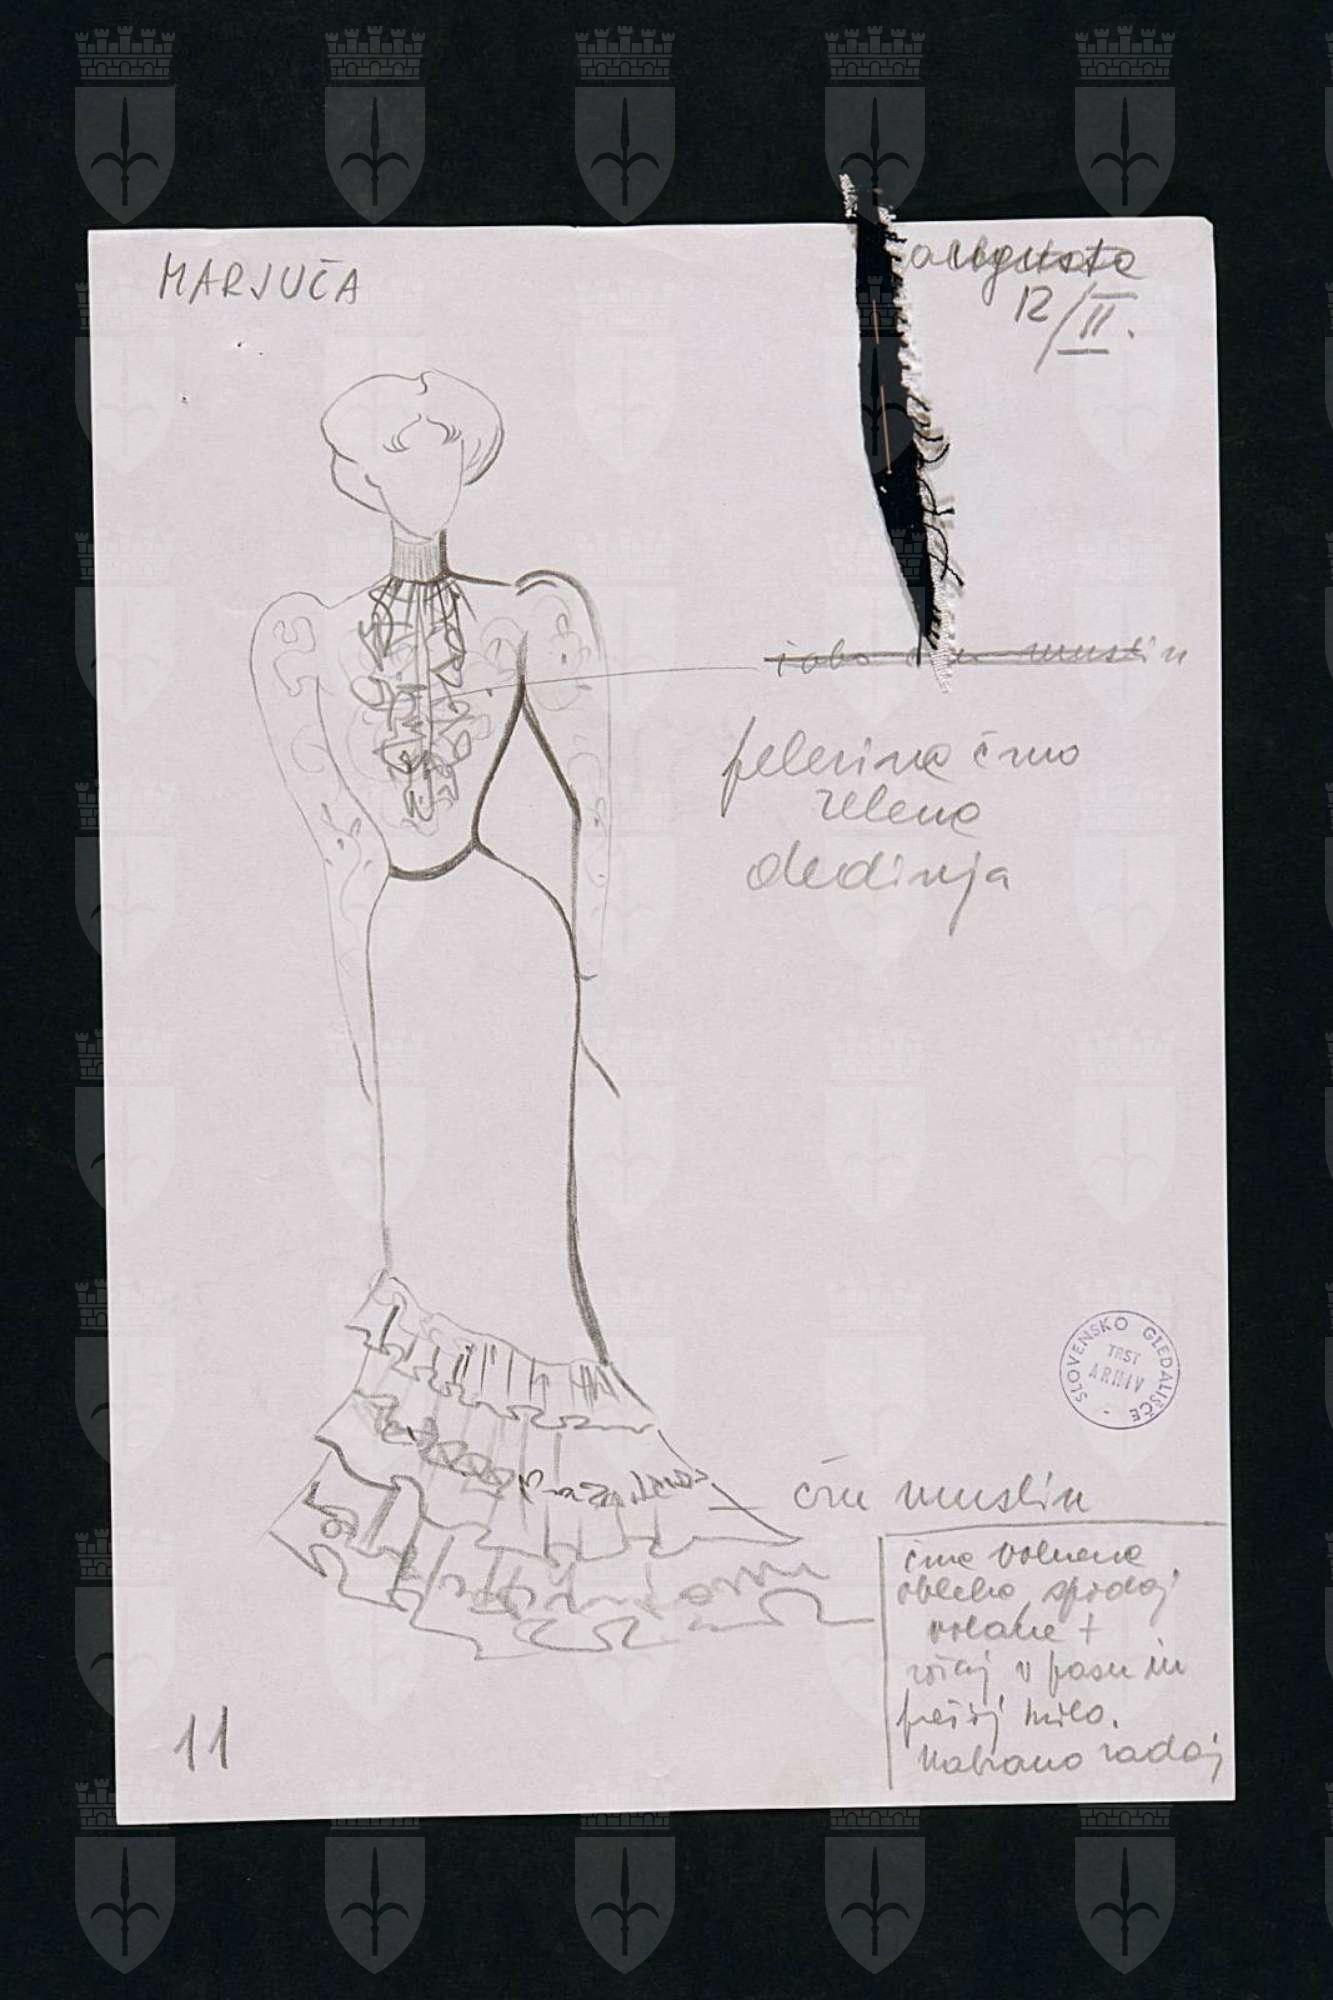 MARJUČA
augusta
12/II.
žabo črn muslin
pelerina črno
zelena
dedinja
SLOVENSKO GLEDALIŠČE
TRST
ARHIV
črn muslin
črna volnena
obleka spodaj
volane +
v pasu in
krilo.
nabrano zadaj
11